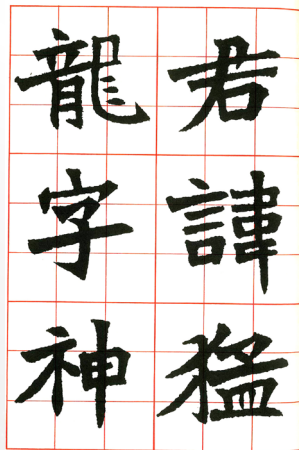 君諱猛
龍字神